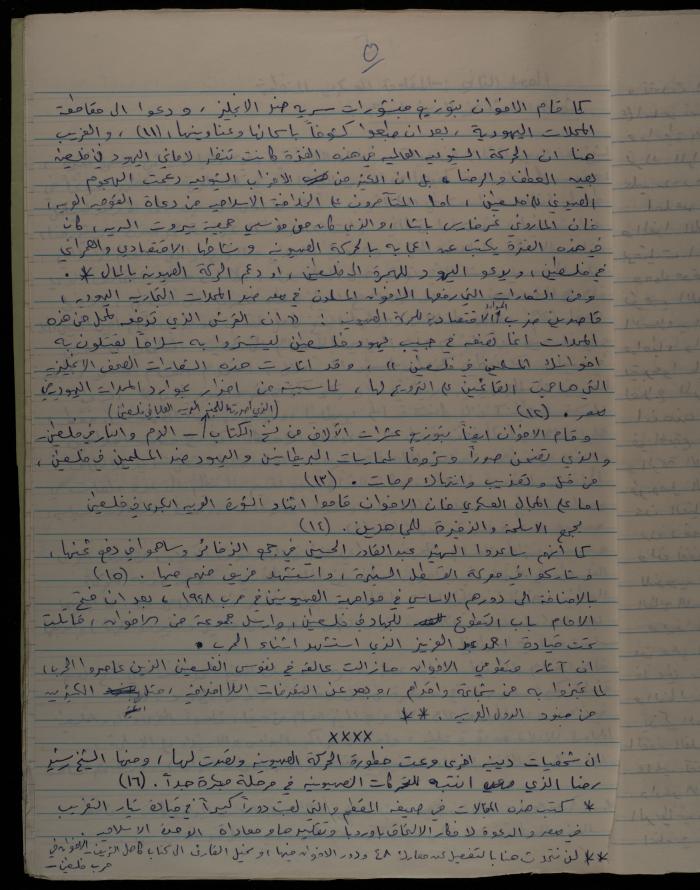 ٥
كما قام الاخوان بتوزيع منشورات سرية ضد الانجليز، ودعوا الى مقاطعة
المحلات اليهودية، بعد ان طبعوا كشوفاً باسمائها وعناوينها، (١١)، والغريب
هنا ان الحركة الشيوعية العالمية في هذه الفترة كانت تنظر لاماني اليهود في فلسطين
بعين العطف والرضا، بل ان الكثير من الاحزاب الشيوعية دعمت الهجوم
الصهيوني على فلسطين، اما المتآمرون على الخلافة الاسلامية من دعاة القومية العربية،
فان الماروني نمر فارس باشا، والذي كان من مؤسسي جمعية بيروت السرية، كان
في هذه الفترة يكتب عن اعجابه بالحركة الصهيونية ونشاطها الاقتصادي والعمراني
في فلسطين، ويدعو اليهود للهجرة الى فلسطين، او دعم الحركة الصهيونية بالمال *.
ومن الشعارات التي رفعها الاخوان المسلمون في مصر ضد المحلات التجارية اليهودية،
قاصدين ضرب الموارد الاقتصادية للحركة الصهيونية: "ان القرش الذي تدفعه لمحل من هذه
المحلات انما تضعه في جيب يهود فلسطين ليشتروا به سلاحاً يقتلون به
اخوانك المسلمين في فلسطين"، وقد اثارت هذه الشعارات الصحف الانجليزية
التي هاجمت القائمين على الترويج لها، لما سببته من اضرار بموارد المحلات اليهودية في
مصر. (١٢) (الذي اصدرته اللجنة العربية العليا في فلسطين)
وقام الاخوان ايضاً بتوزيع عشرات الآلاف من نسخ الكتاب - الدم والنار في فلسطين -
والذي تضمن صوراً وشروحاً لممارسات البريطانيين واليهود ضد المسلمين في فلسطين،
من قتل وتعذيب وانتهاك حرمات. (١٣)
اما على المجال العسكري فان الاخوان قاموا اثناء الثورة العربية الكبرى في فلسطين
بجمع الاسلحة والذخيرة للمجاهدين. (١٤)
كما أنهم ساعدوا الشهيد عبد القادر الحسيني في جمع الذخائر وساهموا في دفع ثمنها،
وشاركوا في معركة القسطل الشهيرة، واستشهد فريق منهم فيها. (١٥)
بالاضافة الى دورهم الاساسي في مواجهة الصهيونيين في حرب ١٩٤٨، بعد ان فتح
الامام باب التطوع للجهاد في فلسطين، وارسل مجموعة من الاخوان، قاتلت
تحت قيادة احمد عبد العزيز الذي استشهد اثناء الحرب.
ان آثار متطوعي الاخوان ما زالت عالقة في نفوس الفلسطينيين الذين عاصروا الحرب،
لما تميزوا به من شجاعة واقدام، وبعد عن التصرفات اللااخلاقية، مثل الكثيرين
من جنود الدول العربية. **
××××
ان شخصيات دينية اخرى وعت خطورة الحركة الصهيونية وتصدت لها، ومنها الشيخ رشيد
رضا الذي انتبه للتحركات الصهيونية في مرحلة مبكرة جداً. (١٦)
* كتب هذه المقالات في صحيفة المقطم والتي لعبت دوراً كبيراً في قيادة تيار التغريب
في مصر والدعوة لافكار الالتحاق باوروبا وتقليدها ومعاداة الوحدة الاسلامية.
** لن نتحدث هنا بالتفصيل عن معارك ٤٨ ودور الاخوان فيها، ونحيل القارئ الى كتاب كامل الشريف - الاخوان في
حرب فلسطين -